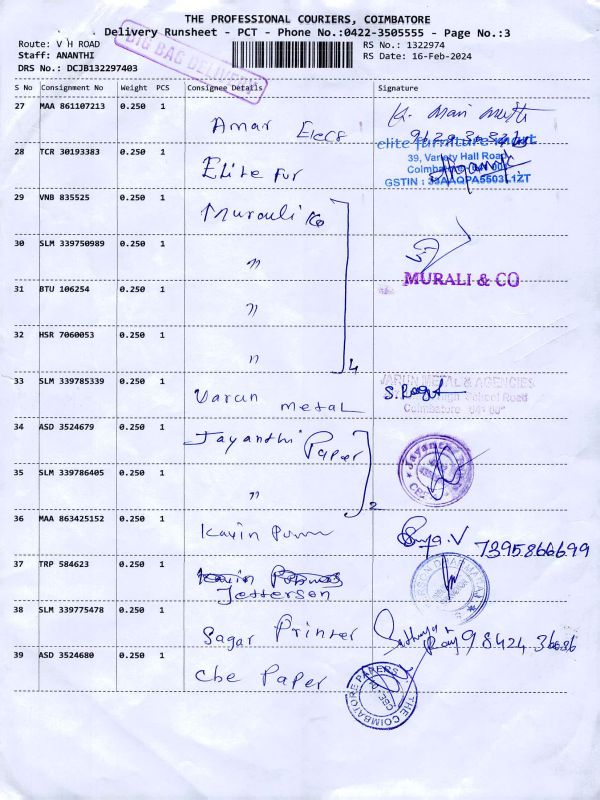 THE PROFESSIONAL COURIERS, COIMBATORE
Delivery Runsheet - PCT - Phone No.:0422-3505555 - Page No.:3
Route: V H ROAD
RS No.: 1322974
Staff: ANANTHI
RS Date: 16-Feb-2024
DRS No.: DCJB132297403
BIG BAG DELIVERY
S No Consignment No Weight PCS Consignee Details Signature
27 MAA 861107213 0.250 1 Amar Elecs
28 TCR 30193383 0.250 1 Elite Fur
elite furniture mart
39, Variety Hall Road
GSTIN : 33AAQPA5503L1ZT
29 VNB 835525 0.250 1 Murauli Ko
30 SLM 339750989 0.250 1 "
MURALI & CO
31 BTU 106254 0.250 1 "
32 HSR 7060053 0.250 1 "
4
33 SLM 339785339 0.250 1 Varun metal
VARUN METAL & AGENCIES
High School Road
Coimbatore
34 ASD 3524679 0.250 1 Jayanthi Paper
35 SLM 339786405 0.250 1 "
2
36 MAA 863425152 0.250 1 Kavin
7395866699
37 TRP 584623 0.250 1
Jefferson
38 SLM 339775478 0.250 1 Sagar Printer Sathya
Raj 98424 36686
39 ASD 3524680 0.250 1 Cbe Paper
THE COIMBATORE PAPERS
CBE-